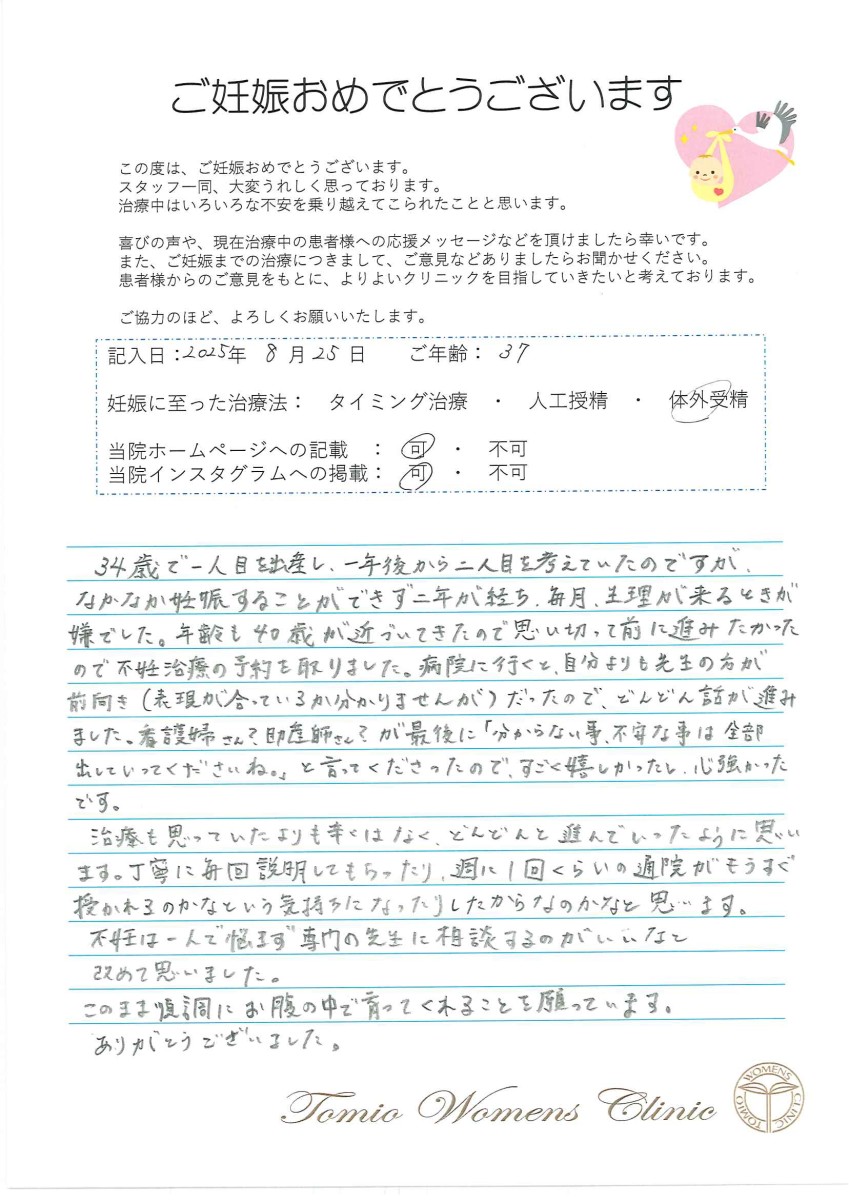 ご妊娠おめでとうございます
この度は、ご妊娠おめでとうございます。
スタッフ一同、大変うれしく思っております。
治療中はいろいろな不安を乗り越えてこられたことと思います。
喜びの声や、現在治療中の患者様への応援メッセージなどを頂けましたら幸いです。
また、ご妊娠までの治療につきまして、ご意見などありましたらお聞かせください。
患者様からのご意見をもとに、よりよいクリニックを目指していきたいと考えております。
ご協力のほど、よろしくお願いいたします。
記入日：2025年 8月25日 ご年齢： 37
妊娠に至った治療法： タイミング治療 ・ 人工授精 ・ 体外受精
当院ホームページへの記載 ： 可 ・ 不可
当院インスタグラムへの掲載： 可 ・ 不可
34歳で一人目を出産し、一年後から二人目を考えていたのですが、
なかなか妊娠することができず二年が経ち、毎月、生理が来るときが
嫌でした。年齢も40歳が近づいてきたので思い切って前に進みたかった
ので不妊治療の予約を取りました。病院に行くと、自分よりも先生の方が
前向き（表現が合っているか分かりませんが）だったので、どんどん話が進み
ました。看護婦さん？助産師さん？が最後に「分からない事、不安な事は全部
出していってくださいね。」と言ってくださったので、すごく嬉しかったし、心強かった
です。
治療も思っていたよりも辛くはなく、どんどんと進んでいったように思い
ます。丁寧に毎回説明してもらったり、週に1回くらいの通院がもうすぐ
授かれるのかなという気持ちになったりしたからなのかなと思います。
不妊は一人で悩まず専門の先生に相談するのがいいなと
改めて思いました。
このまま順調にお腹の中で育ってくれることを願っています。
ありがとうございました。
Tomio Womens Clinic
TOMIO WOMENS CLINIC